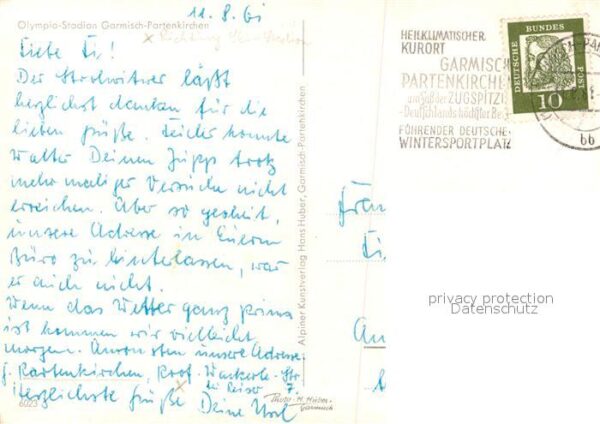 11.8.61
Olympia-Stadion Garmisch-Partenkirchen
Liebe Li!
Der Strohwitwer läßt
herzlichst danken für die
lieben Grüße. Leider konnte
Walter Deinen Jupp trotz
mehrmaliger Versuche nicht
erreichen. Aber so gescheit,
unsere Adresse in Eurem
Büro zu hinterlassen, war
er auch nicht.
Wenn das Wetter ganz prima
ist kommen wir vielleicht
morgen. Ansonsten unsere Adresse:
G. Partenkirchen, Prof. Wackerle-Str
bei Reiser 7.
Herzlichste Grüße Deine
6023
Alpiner Kunstverlag Hans Huber, Garmisch-Partenkirchen
Photo H. Huber
Garmisch
HEILKLIMATISCHER
KURORT
GARMISCH
PARTENKIRCHE
am Fuß der ZUGSPITZE
Deutschlands höchster Be
FÜHRENDER DEUTSCHE
WINTERSPORTPLATZ
DEUTSCHE
BUNDES
POST
10
bb
privacy protection
Datenschutz